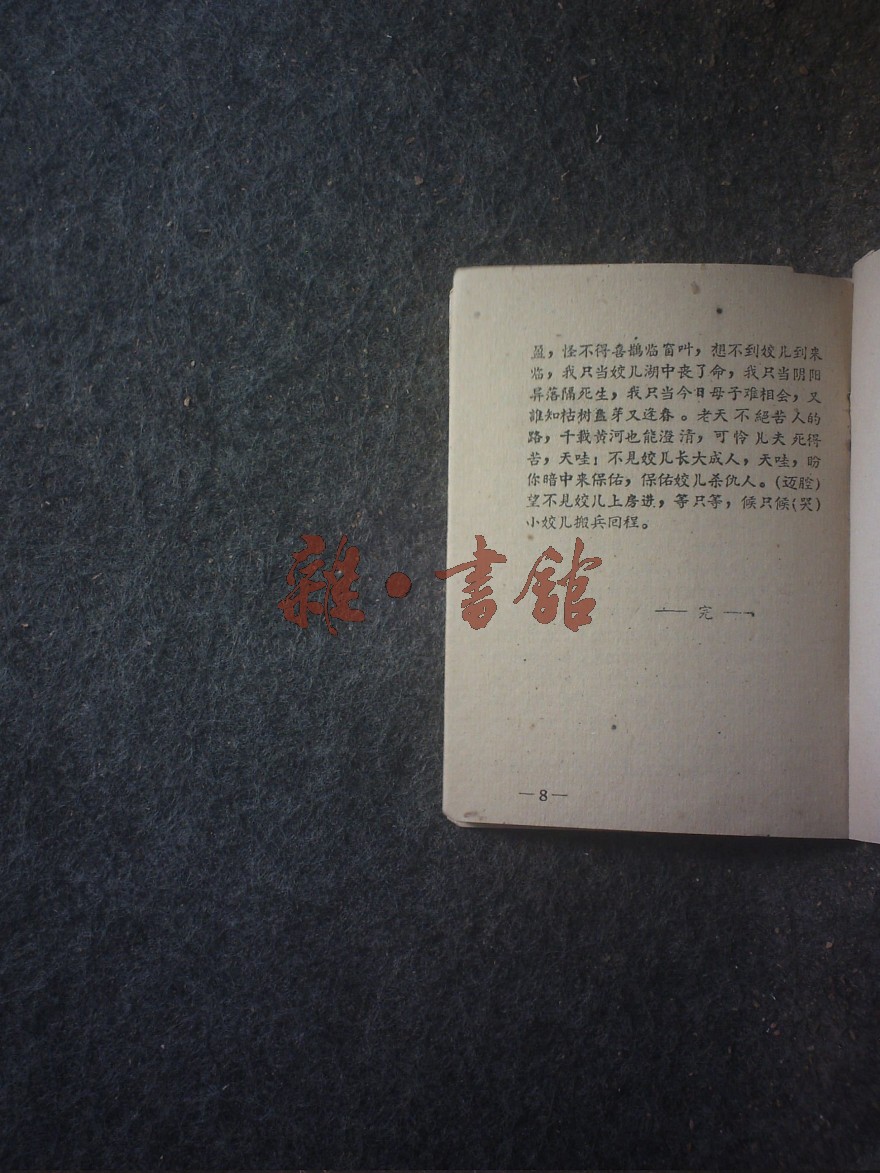 盈，怪不得喜鹊临窗叫，想不到姣儿到来
临，我只当姣儿湖中丧了命，我只当阴阳
异落隔死生，我只当今日母子难相会，又
誰知枯树盘芽又逢春。老天不絕苦人的
路，千载黄河也能澄清，可怜儿夫死得
苦，天哇！不見姣儿长大成人，天哇，盼
你暗中来保佑，保佑姣儿杀仇人。(迈腔)
望不見姣儿上房进，等只等，候只候(哭)
小姣儿搬兵回程。
——完——
—8—
雜·書館